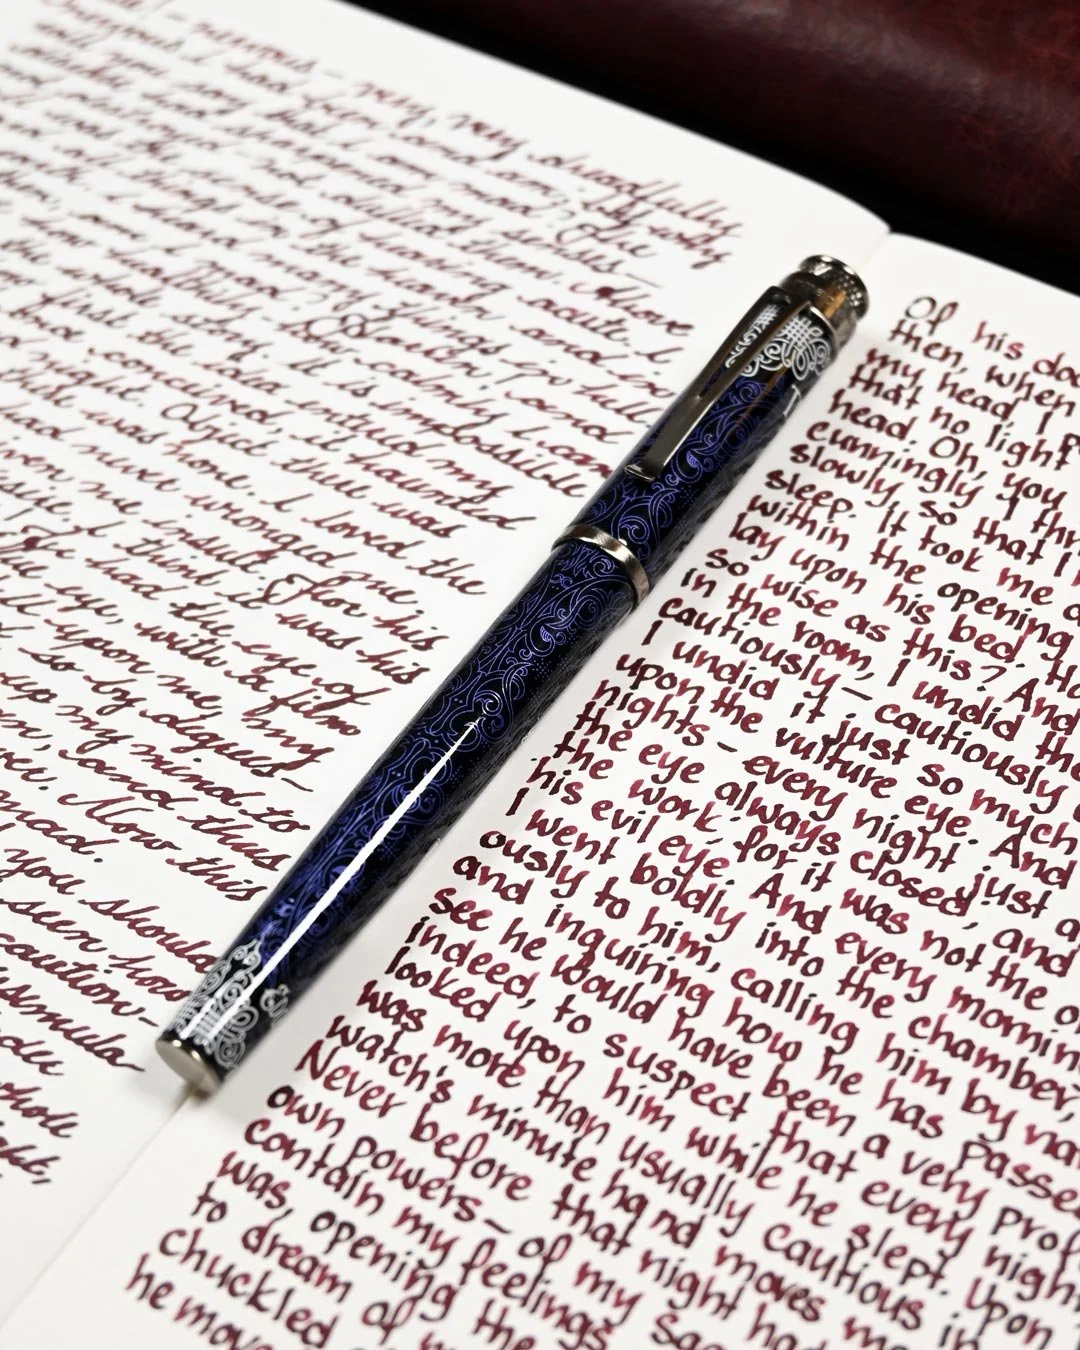 nervous – very, very dreadfully
nervous I had been and am; but why
will you say that I am mad? The
disease had sharpened my senses –
destroyed – not dulled them. Above
all was the sense of hearing acute. I
all things in the heaven and in
earth. I heard many things in hell.
then, am I mad? Hearken! and
how healthily – how calmly I can
the whole story. It is impossible
how first the idea entered my
but once conceived, it haunted
Object there was
there was none. I loved the
had never wronged me.
given me insult. For his
I think it was his
He had the eye of
eye, with a film
fell upon me, my
so by degrees –
up my mind to
man, and thus
Now this
mad.
you should
seen how
caution–
dissimula-
whole
night,
Of his
then, when
my head, I
that no light
head. Oh, you
cunningly I
slowly, so that I
sleep. It took me
within the opening
lay upon his bed.
so wise as this? And
in the room, I undid the
cautiously – cautiously
I undid it just so much
upon the vulture eye. And
nights – every night just
the eye always closed, and
the work; for it was not the
his evil eye. And every
I went boldly into the chamber,
ously to him, calling him by
and inquiring how he has
see he would have been a very
indeed, to suspect that every night
looked upon him while he slept. Upon
was more than usually cautious in
watch's minute hand moves
Never before that night
own powers – of my
contain my feelings
was, opening the
to dream of
chuckled
he